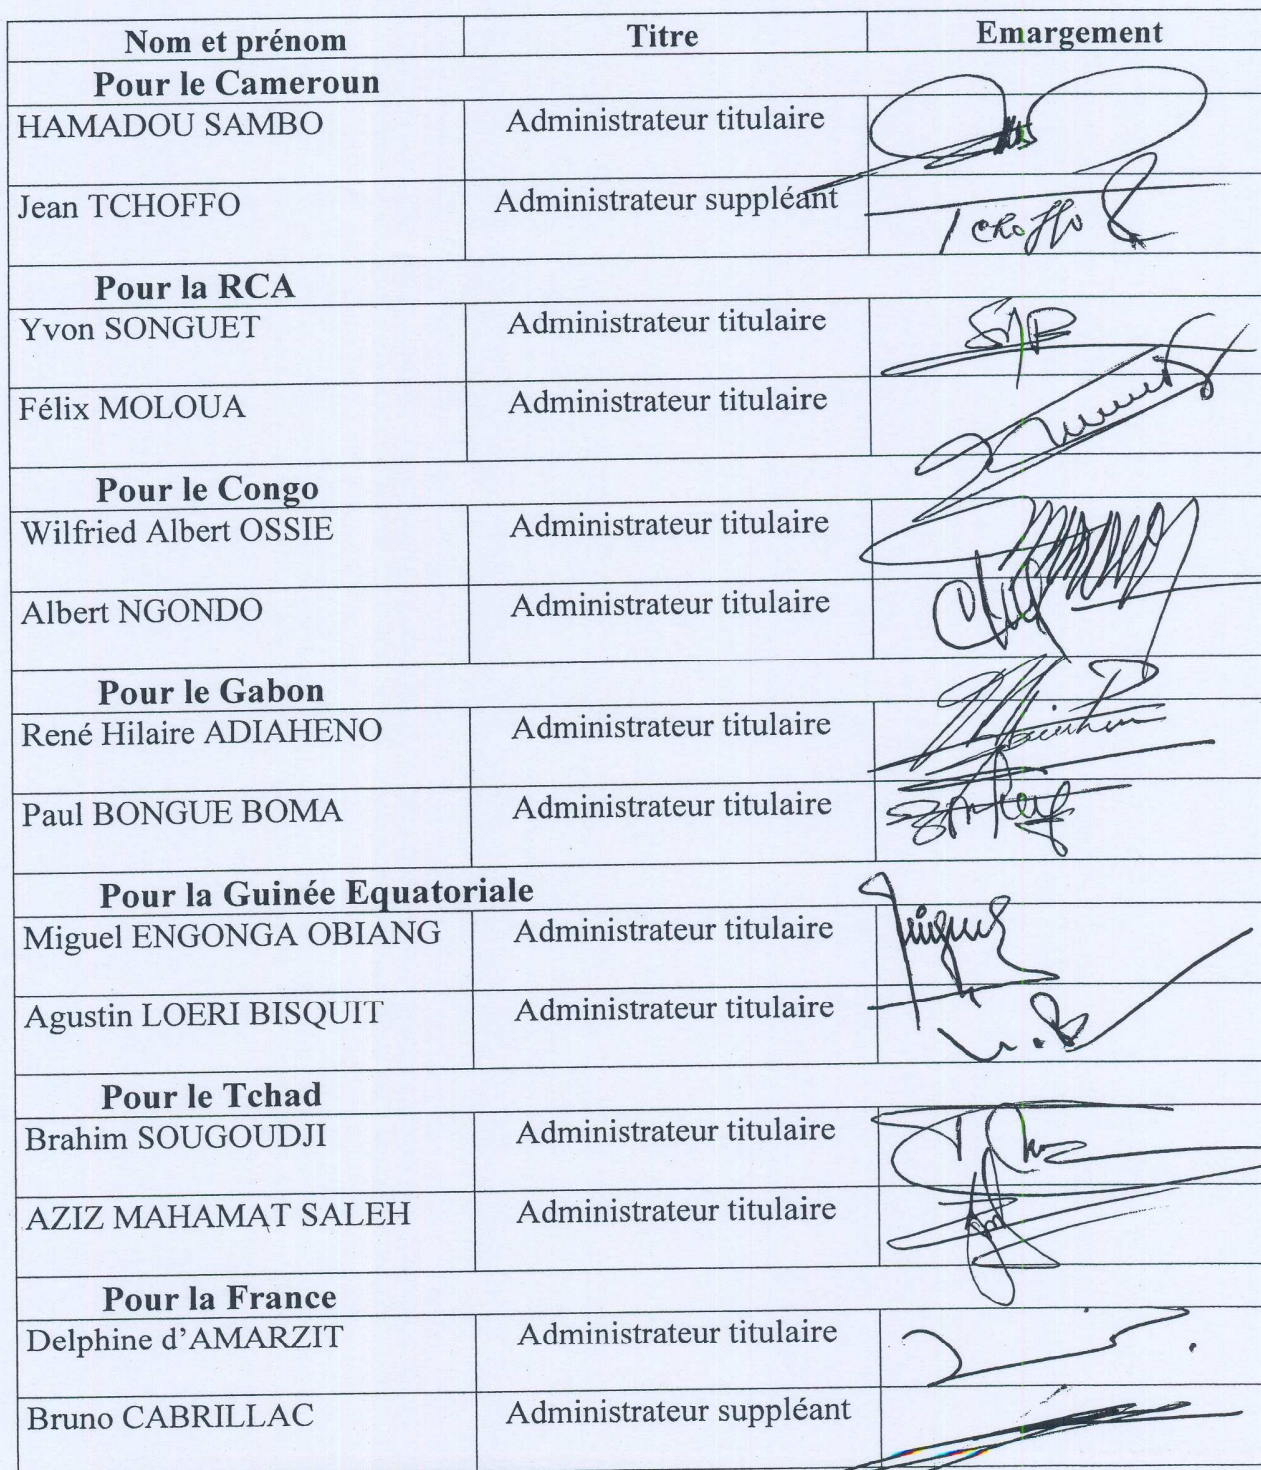 Nom et prénom Titre Emargement
Pour le Cameroun
HAMADOU SAMBO Administrateur titulaire
Jean TCHOFFO Administrateur suppléant Tchoffo
Pour la RCA
Yvon SONGUET Administrateur titulaire
Félix MOLOUA Administrateur titulaire
Pour le Congo
Wilfried Albert OSSIE Administrateur titulaire
Albert NGONDO Administrateur titulaire
Pour le Gabon
René Hilaire ADIAHENO Administrateur titulaire
Paul BONGUE BOMA Administrateur titulaire
Pour la Guinée Equatoriale
Miguel ENGONGA OBIANG Administrateur titulaire
Agustin LOERI BISQUIT Administrateur titulaire
Pour le Tchad
Brahim SOUGOUDJI Administrateur titulaire
AZIZ MAHAMAT SALEH Administrateur titulaire
Pour la France
Delphine d'AMARZIT Administrateur titulaire
Bruno CABRILLAC Administrateur suppléant